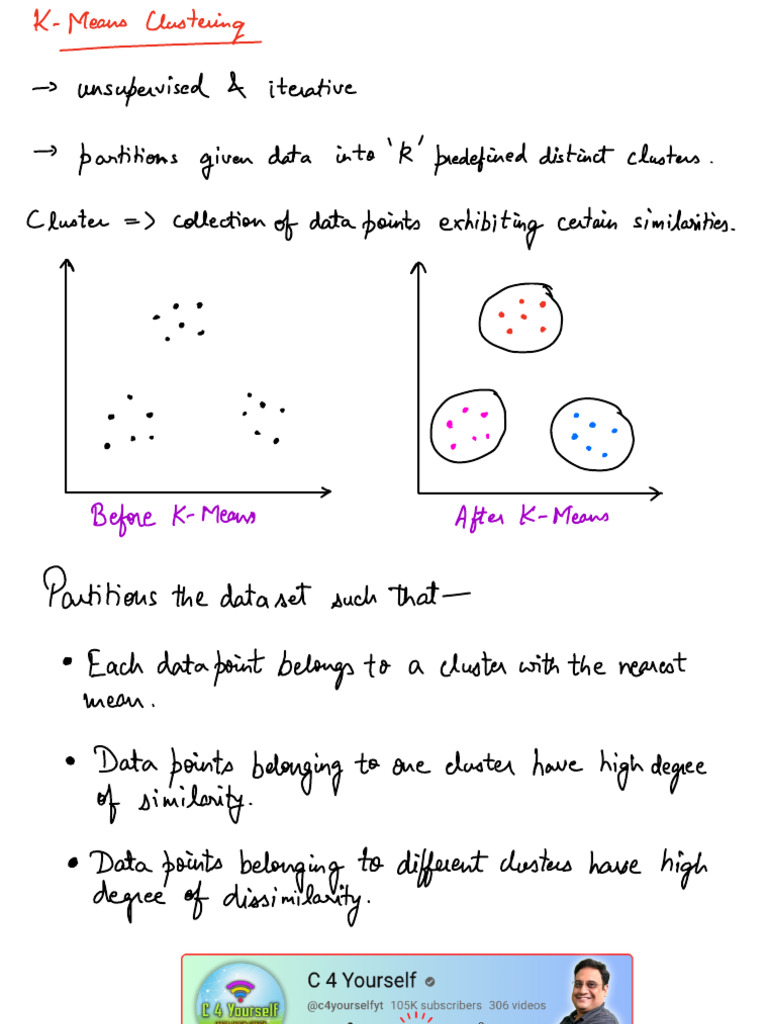 K-Means Clustering
→ unsupervised & iterative
→ partitions given data into 'K' predefined distinct clusters.
Cluster => collection of data points exhibiting certain similarities.
Before K-Means
After K-Means
Partitions the data set such that —
• Each data point belongs to a cluster with the nearest
mean.
• Data points belonging to one cluster have high degree
of similarity.
• Data points belonging to different clusters have high
degree of dissimilarity.
C 4 Yourself
@c4yourselfyt 105K subscribers 306 videos
C 4 Yourself